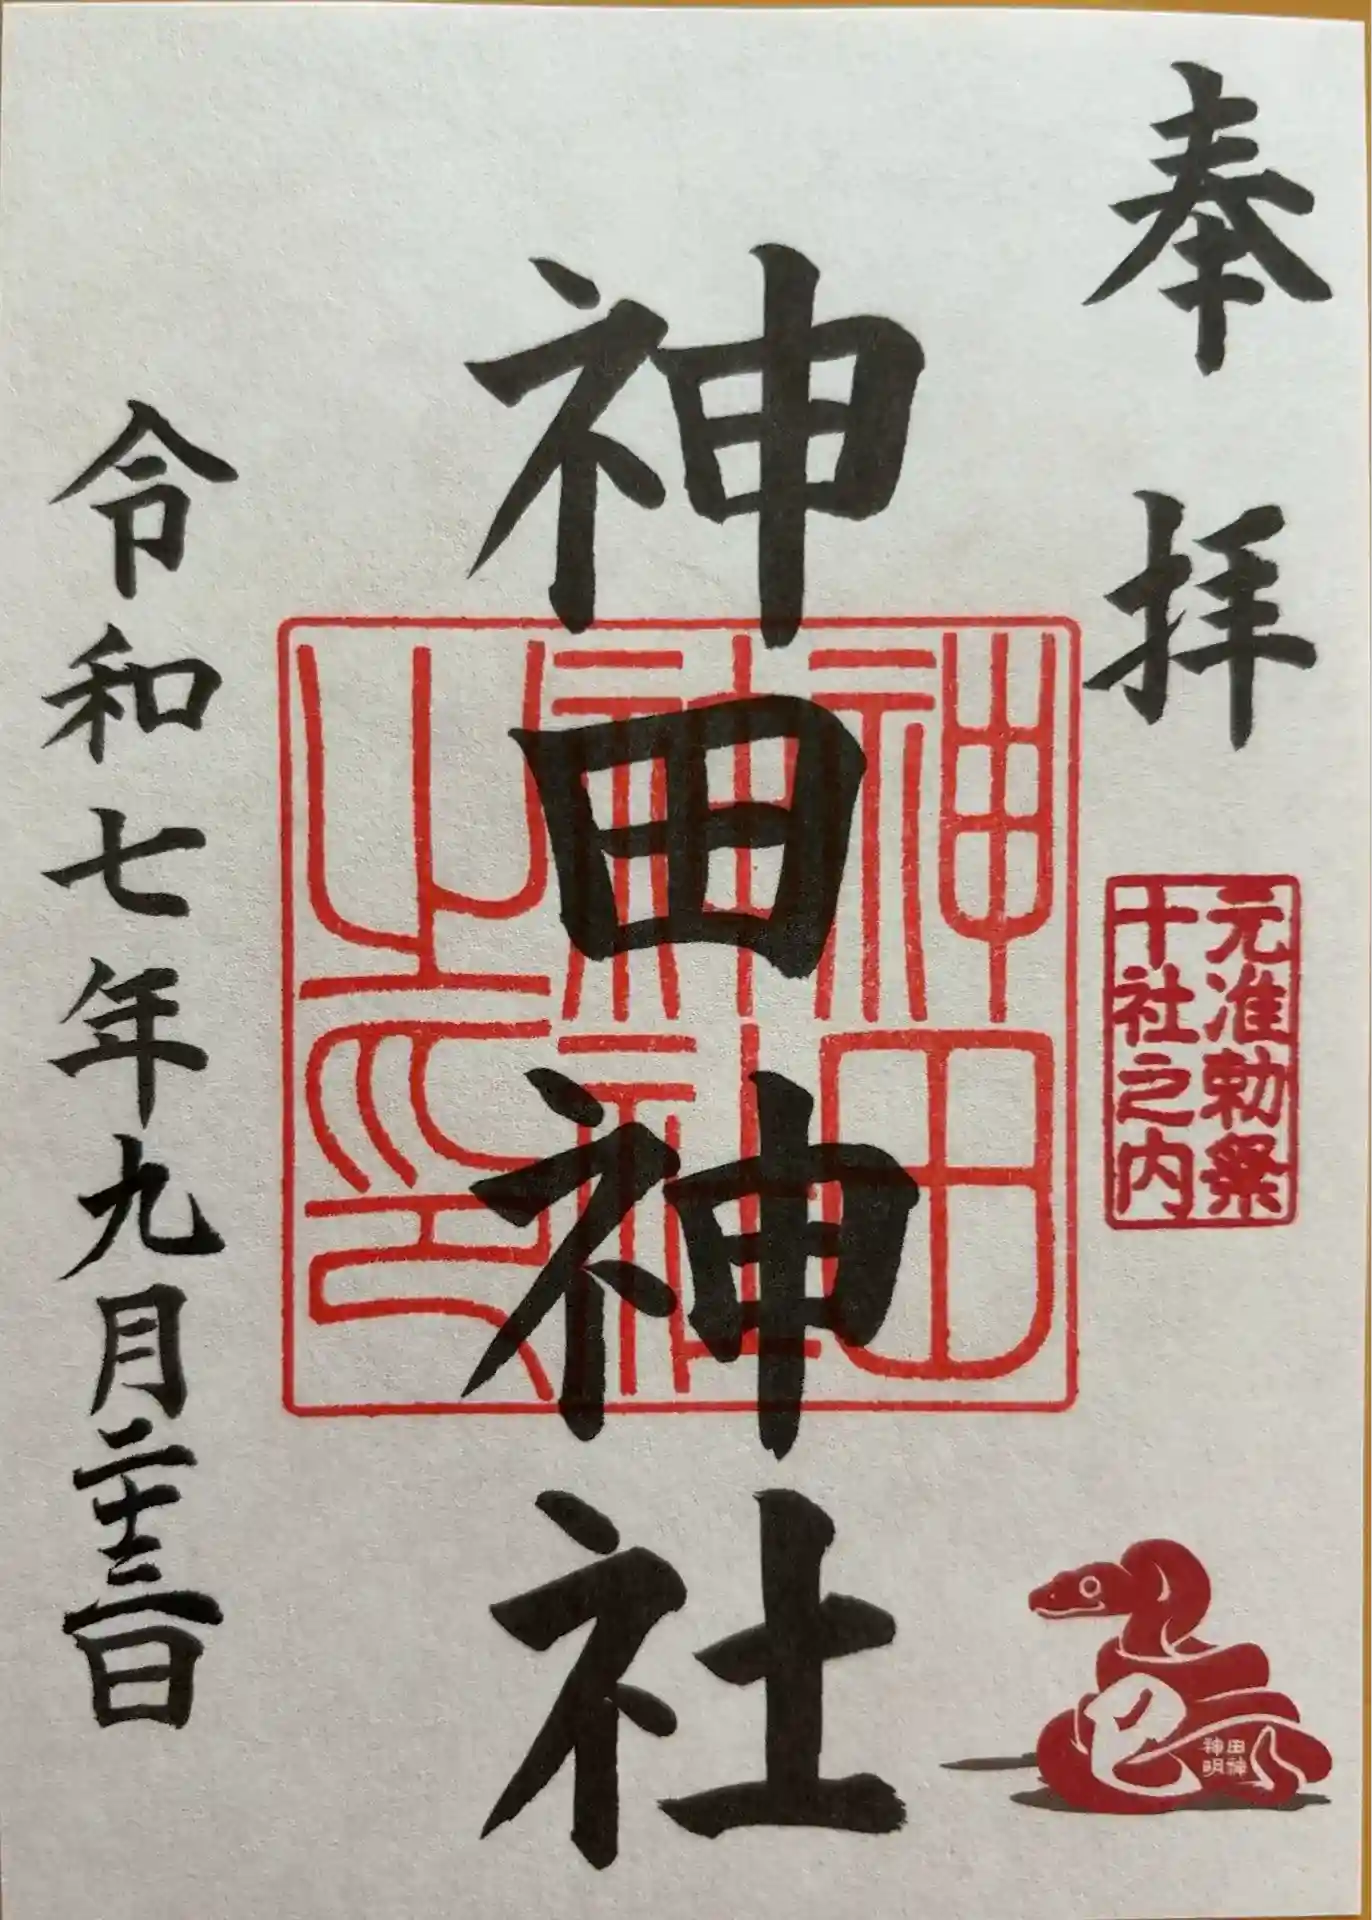 奉拝
元准勅祭
十社之内
神田神社
神田
神社
之印
令和七年九月二十三日
巳
田神
神明